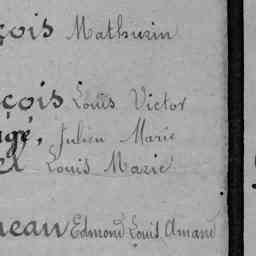 çois Mathurin
çois Louis Victor
agé, Julien Marie
el Louis Marie
neau Edmond Louis Amand